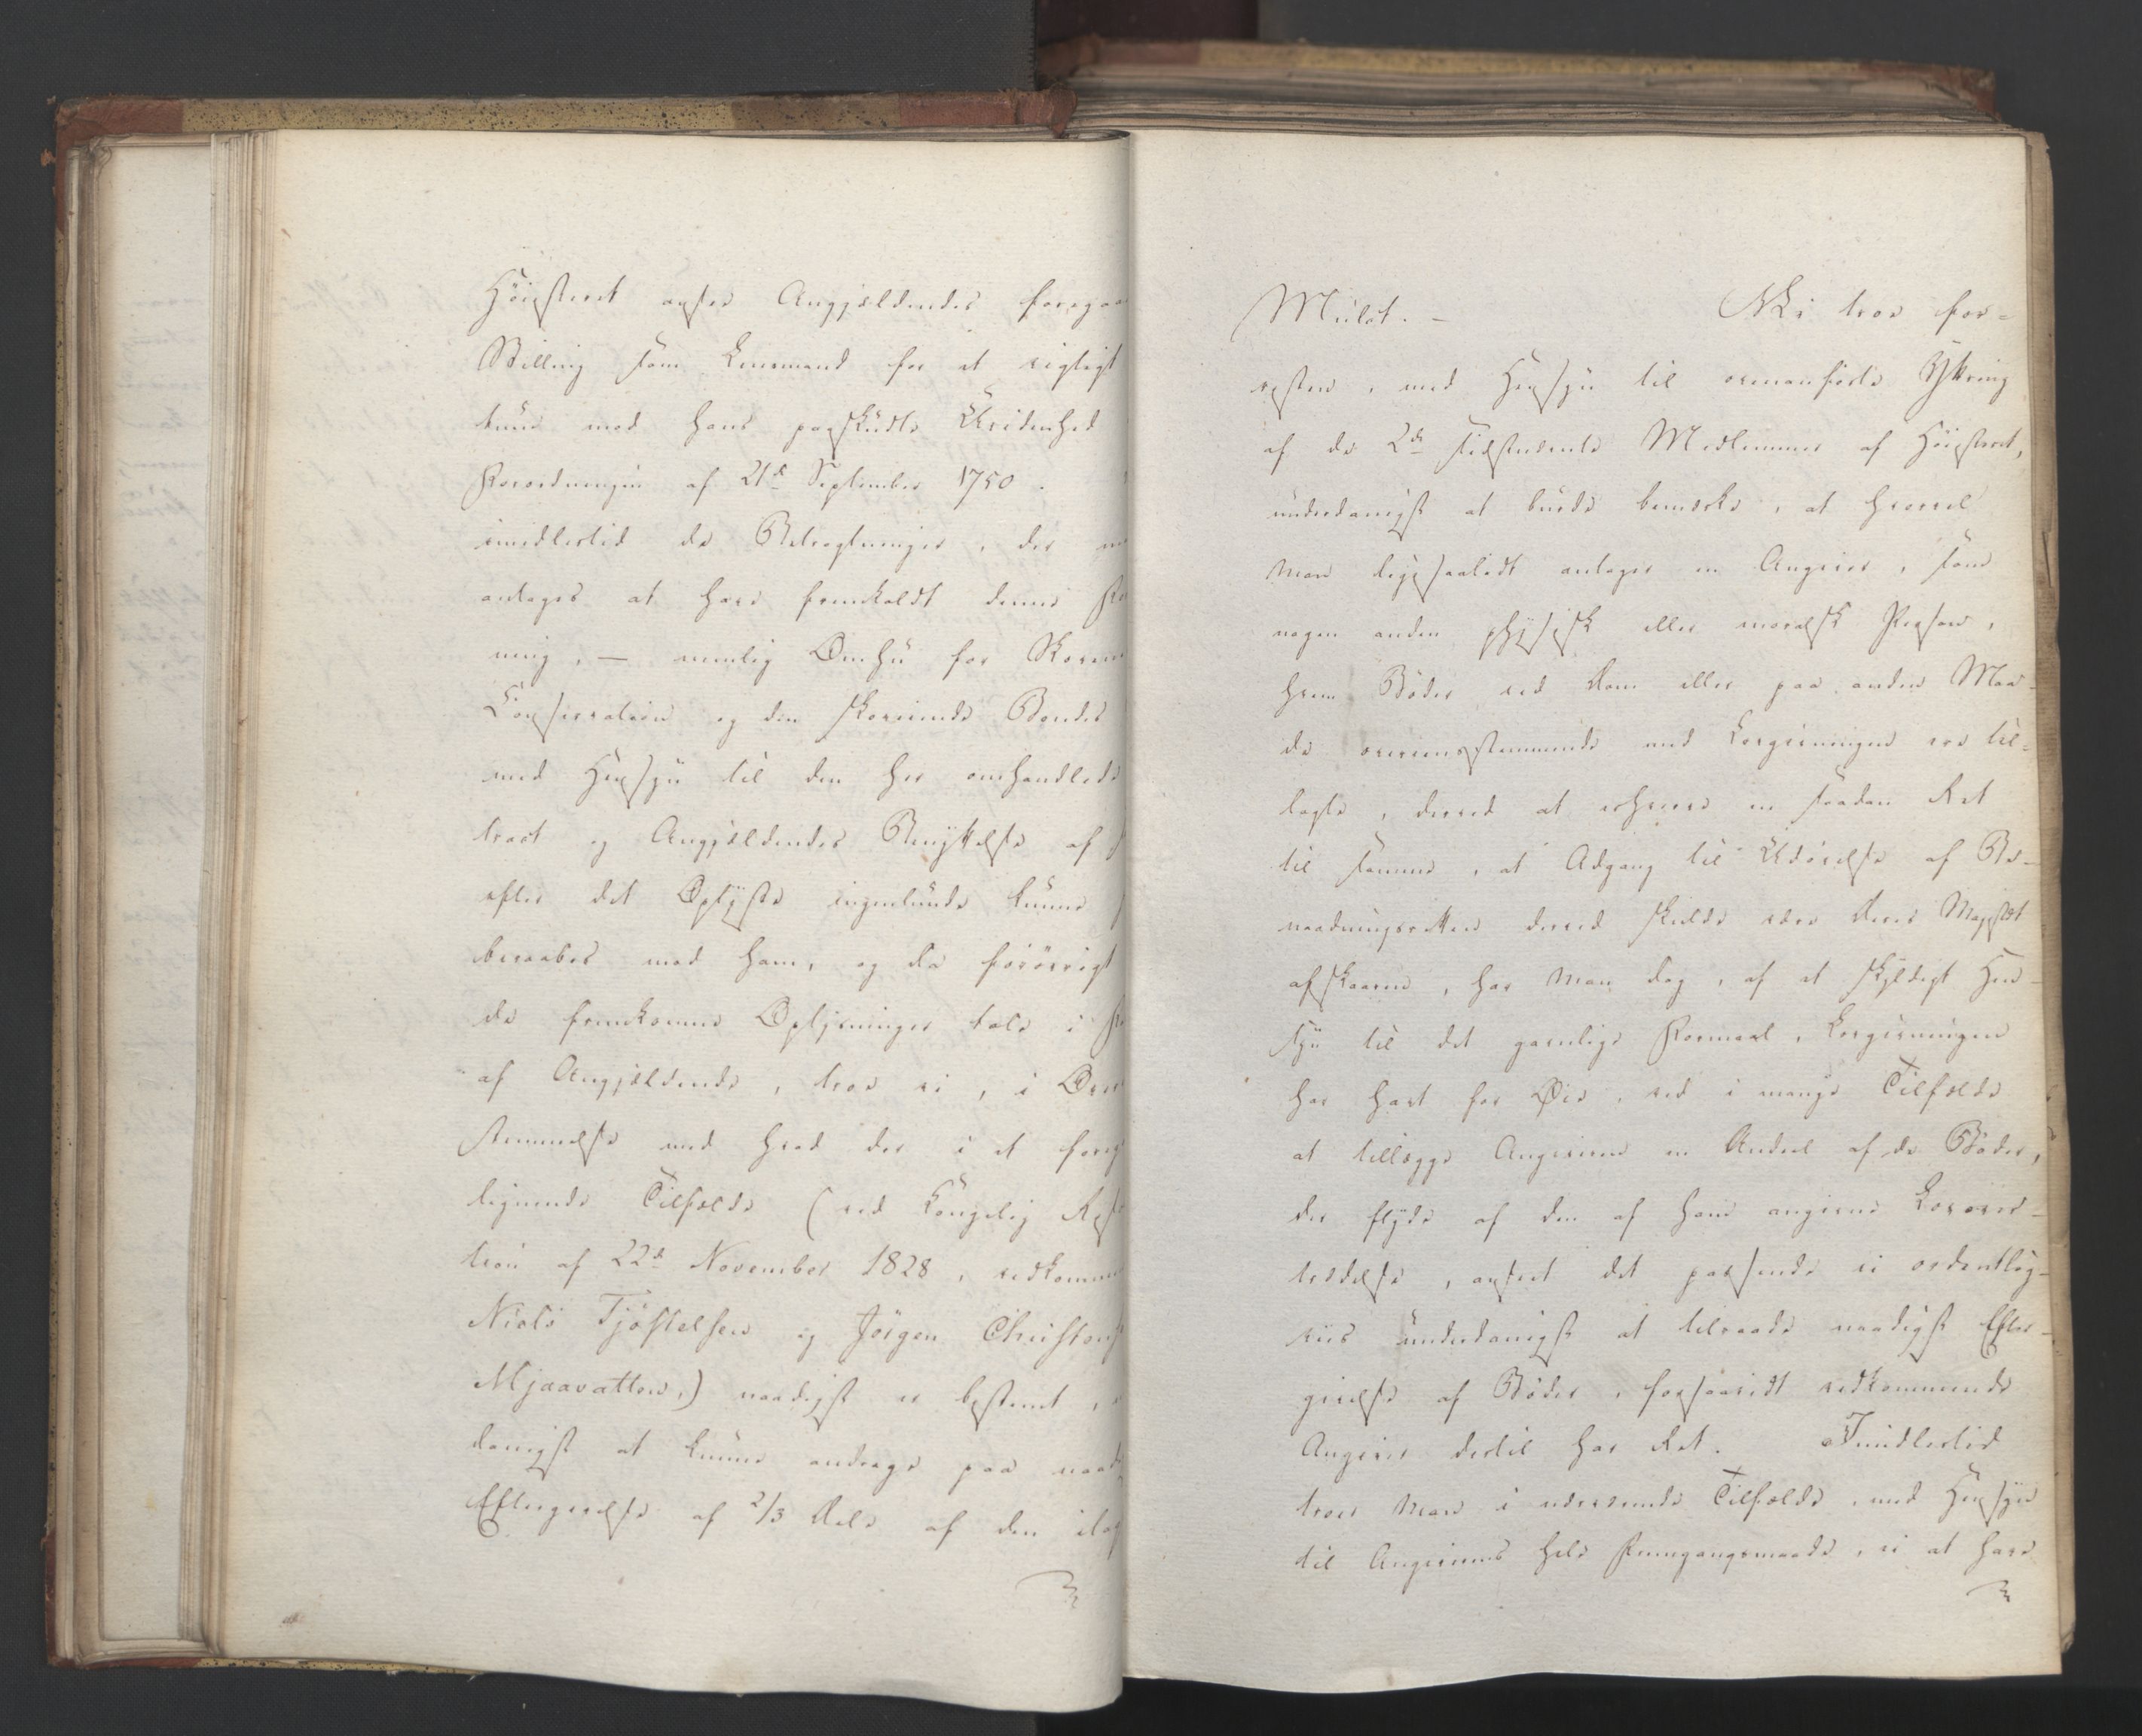 Höiesteret anseer Angjældendes foregaa
Stilling som Lensmand for et vigtigt
büüs mod hans paaskudte Uvidenhed
Forordningen af 21de September 1750.
imidlertid de Betragtninger, der m
antages at have fremkaldt denne Fo
ning, — nemlig Omhü for Skoven
Conservation og den skoveiende Bondes
med Hensyn til den her omhandlede
tract og Angjældendes Benyttelse af
efter det Oplyste ingenlunde kunne
beraabes mod ham, og da forövrigt
de fremkomne Oplysninger tale i F
af Angjældende, troe vi, i Over
stemmelse med hvad der i et foreg
lignende Tilfælde (ved Kongelig Reso
tion af 22de November 1828, vedkomme
Niels Tjöstelsen og Jörgen Christens
Mjaavatten,) naadigst er bestemt,
danigst at kunne andrage paa naad
Eftergivelse af 2/3 Dele af den ilag
Mulct. — Vi troe for-
resten, med Hensyn til ovenanförte Yttring
af de 2de sidstvoterende Medlemmer af Höiesteret,
underdanigst at burde bemærke, at hvorvel
man ligesaalidt antager en Angiver, som
nogen anden physisk eller moralsk Person,
hvem Böder ved Dom eller paa anden Maa-
de overeensstemmende med Lovgivningen ere til-
lagte, derved at erhverve en saadan Ret
til samme, at Adgang til Udövelse af Be-
naadningsretten derved skulde være Deres Majestæt
afskaaren, har man dog, af et skyldigt Hen-
syn til det gavnlige Formaal, Lovgivningen
har havt for Öie, ved i mange Tilfælde
at tillægge Angiveren en Andeel af de Böder,
der flyde af den af ham angivne Lovover-
trædelse, anseet det passende ei ordentlig-
viis underdanigst at tilraade naadigst Efter-
givelse af Böder, forsaavidt vedkommende
Angiver dertil har Ret. Imidlertid
troer man i nærværende Tilfælde, med Hensyn
til Angiverens hele Fremgangsmaade, ei at have